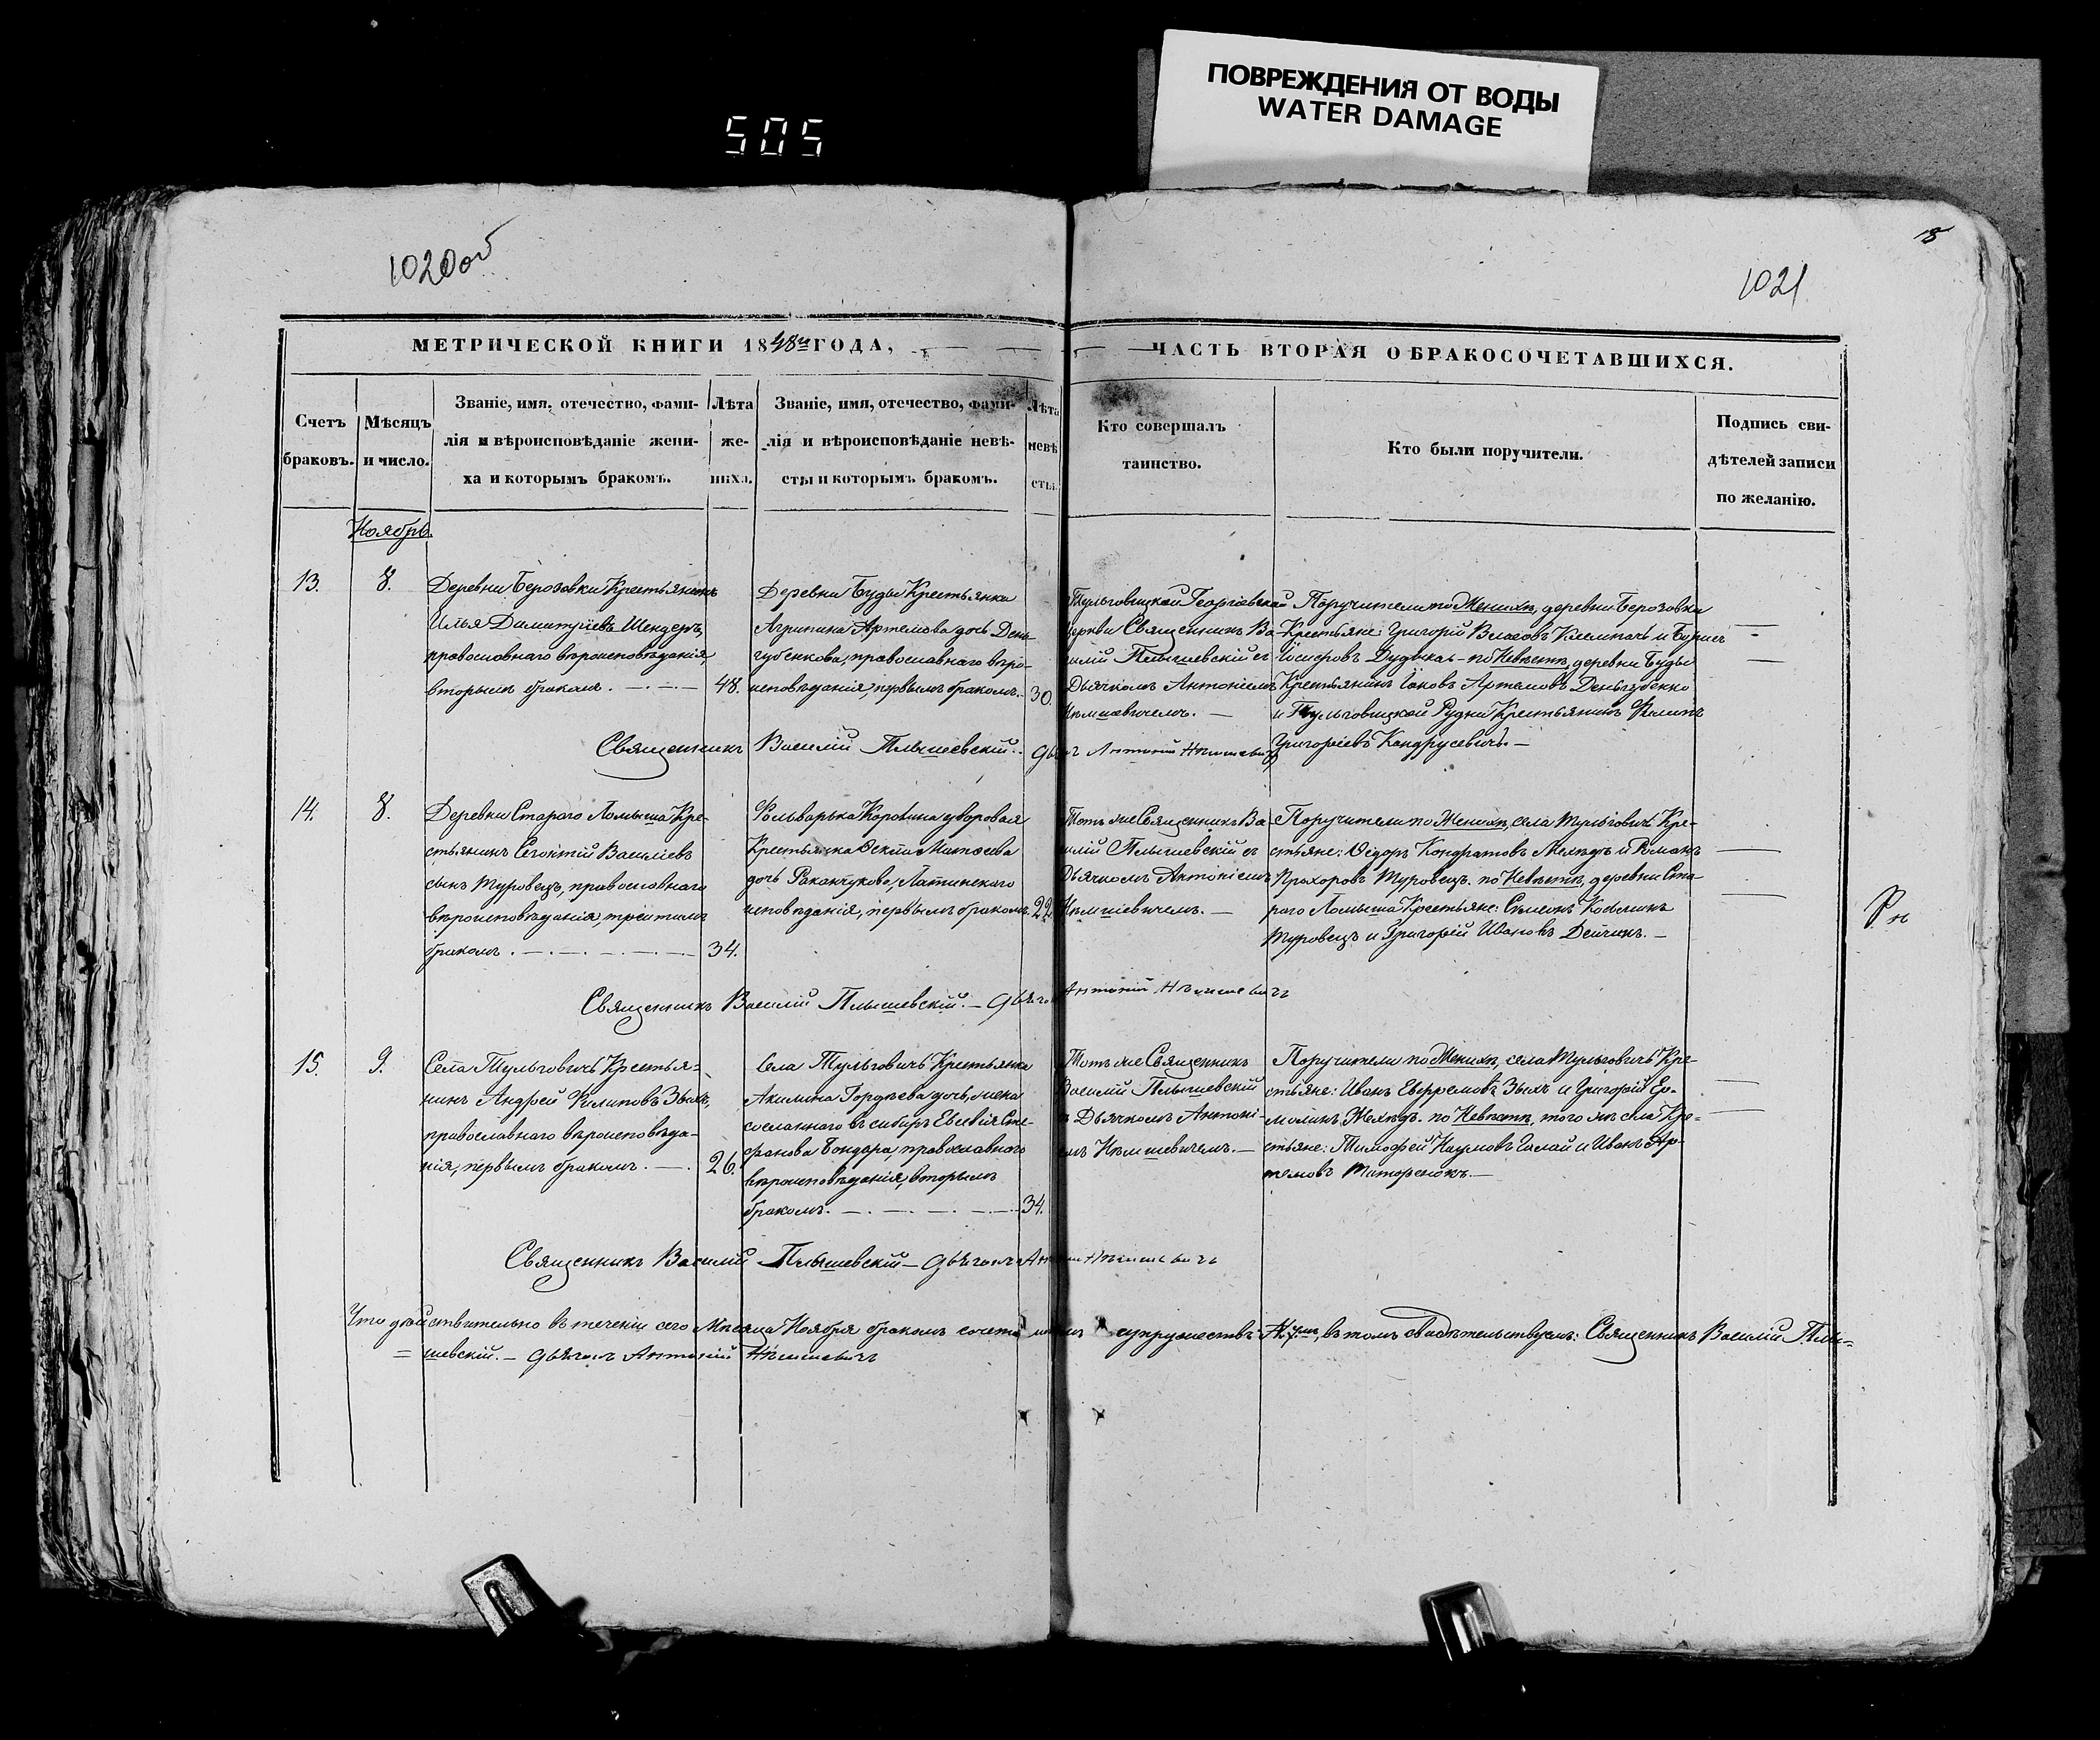 ПОВРЕЖДЕНИЯ ОТ ВОДЫ
WATER DAMAGE
505
1020об
18
1021
МЕТРИЧЕСКОЙ КНИГИ 1848го ГОДА,
ЧАСТЬ ВТОРАЯ О БРАКОСОЧЕТАВШИХСЯ.
Счетъ
браковъ.
Мѣсяцъ
и число.
Званіе, имя, отечество, фами-
лія и вѣроисповѣданіе жени-
ха и которымъ бракомъ.
Лѣта
же-
ниха.
Званіе, имя, отечество, фами-
лія и вѣроисповѣданіе невѣ-
сты и которымъ бракомъ.
Лѣта
невѣ
сты.
Кто совершалъ
таинство.
Кто были поручители.
Подпись сви-
дѣтелей записи
по желанію.
Ноябрь.
13.
8.
Деревни Березовки Крестьянинъ
Илья Димитріевъ Шендеръ,
православнаго вѣроисповѣданія,
вторымъ бракомъ.
48.
Деревни Буды Крестьянка
Агрипина Артемова дочь День-
губенкова, православнаго вѣро-
исповѣданія, первымъ бракомъ.
30.
Тульговицкой Георгіевской
церкви Священникъ Ва-
силій Плышевскій съ
Дьячкомъ Антоніемъ
Нѣмшевичемъ.
Поручители по Женихѣ, деревни Березовки
Крестьяне: Григорій Власовъ и Борисъ
Іосифовъ Дудкаль - по Невѣстѣ, деревни Буды
Крестьянинъ Іаковъ Артемовъ Деньгубенко
и Тульговицкой Рудни Крестьянинъ Филипъ
Григоріевъ Кондрусевичъ.
Священникъ Василій Плышевскій. Дьячокъ Антоній Нѣмшевичъ
14.
8.
Деревни Старого Ломыша Кре-
стьянинъ Василіевъ
сынъ Туровецъ, православнаго
вѣроисповѣданія, третимъ
бракомъ.
34.
Фольварка Коровина дворовая
Крестьянка Матѳеева
дочь Латинскаго
исповѣданія, первымъ бракомъ.
22
Тотъ же Священникъ Ва-
силій Плышевскій съ
Дьячкомъ Антоніемъ
Нѣмшевичемъ.
Поручители по Женихѣ, села Тульговичъ Кре-
стьяне: Ѳедоръ Кондратовъ и Романъ
Прохоровъ Туровецъ. по Невѣстѣ, деревни Ста-
рого Ломыша Крестьяне: Симеонъ
Туровецъ и Григорій Ивановъ Дейчикъ.
Священникъ Василій Плышевскій. - Дьячокъ Антоній Нѣмшевичъ
15.
9.
Села Тульговичъ Крестья-
нинъ Андрей Филиповъ Зыль,
православнаго вѣроисповѣда-
нія, первымъ бракомъ.
26.
Села Тульговичъ Крестьянка
Акилина Гордѣева дочь, жена
сосланнаго въ сибирь Евсевія Сте-
фанова Бондара, православнаго
вѣроисповѣданія, вторымъ
бракомъ.
34.
Тотъ же Священникъ
Василій Плышевскій
съ Дьячкомъ Антоні-
емъ Нѣмшевичемъ.
Поручители по Женихѣ, села Тульговичъ Кре-
стьяне: Иванъ Евфремовъ Зыль и Григорій Ер-
молинъ. по Невѣстѣ, того же села Кре-
стьяне: Тимофей Наумовъ Галай и Иванъ Ар-
темовъ
Священникъ Василій Плышевскій - Дьячокъ Антоній Нѣмшевичъ
Что дѣйствительно въ теченіи сего Мѣсяца Ноября бракомъ супружествъ въ томъ свидѣтельствуемъ: Священникъ Василій Плы-
шевскій. - Дьячокъ Антоній Нѣмшевичъ